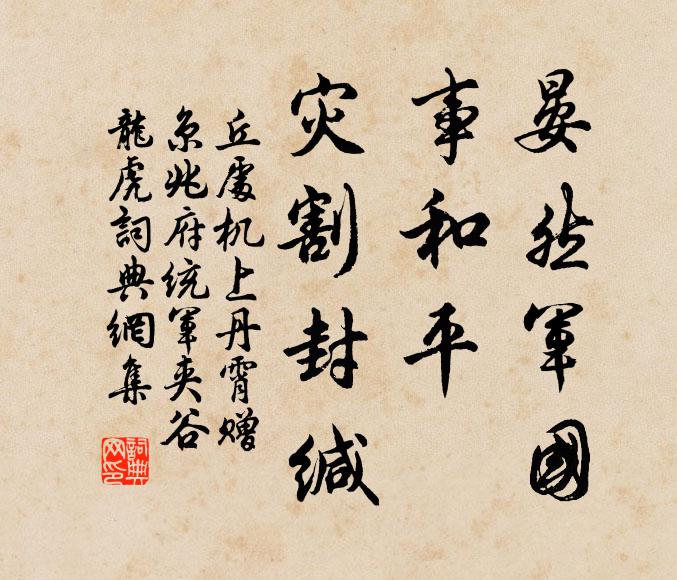 晏然军國
事和平
灾割封缄
丘處机上丹霄赠
京兆府统军夾谷
龍虎詞典網集
詞典
网印